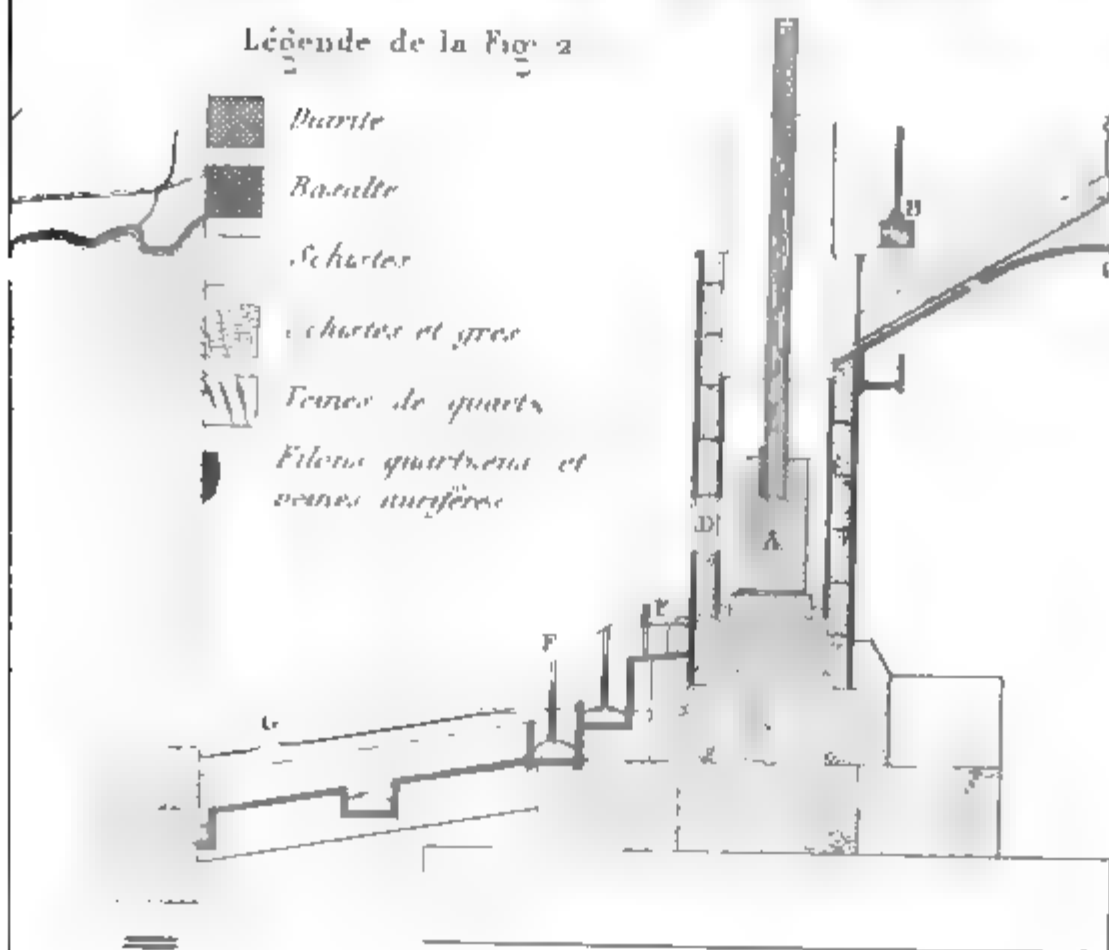 Légende de la Fig. 2
Diorite
Basalte
Schistes
Schistes et grès
Veines de quartz
Filons quartzeux et
veines aurifères
B
D
A
F
G